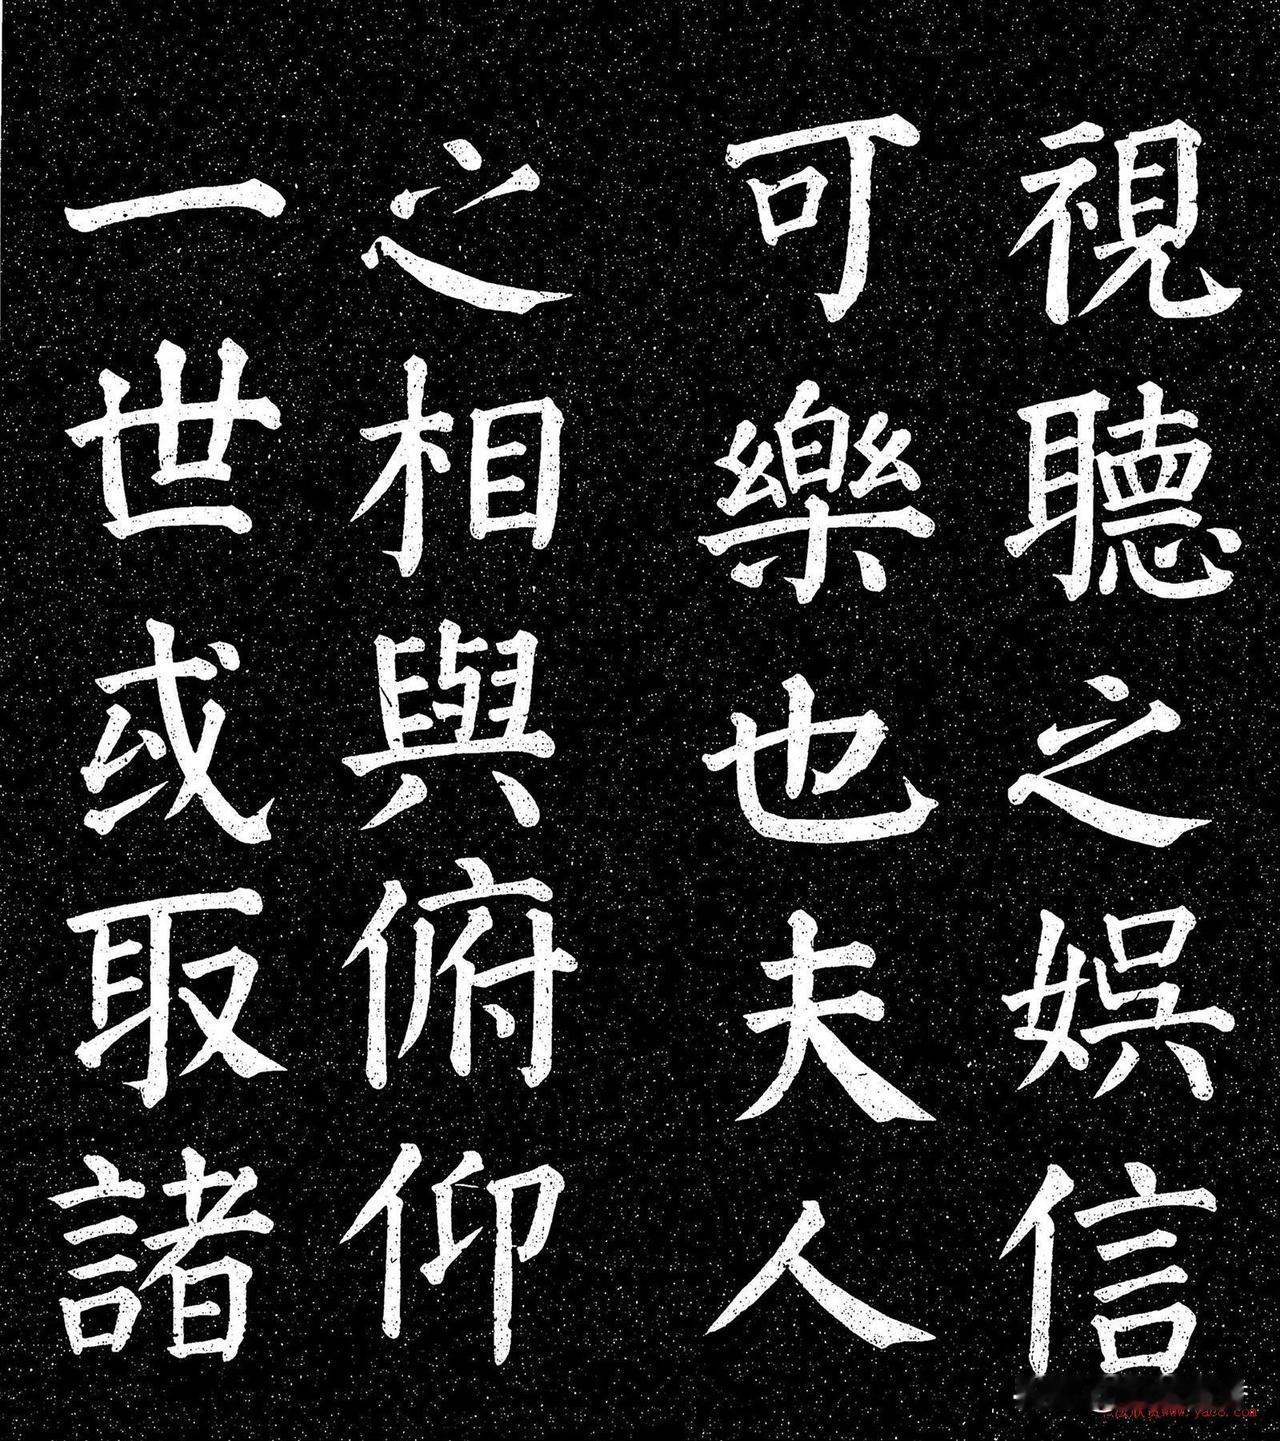 視聽之娛信
可樂也夫人
之相與俯仰
一世或取諸